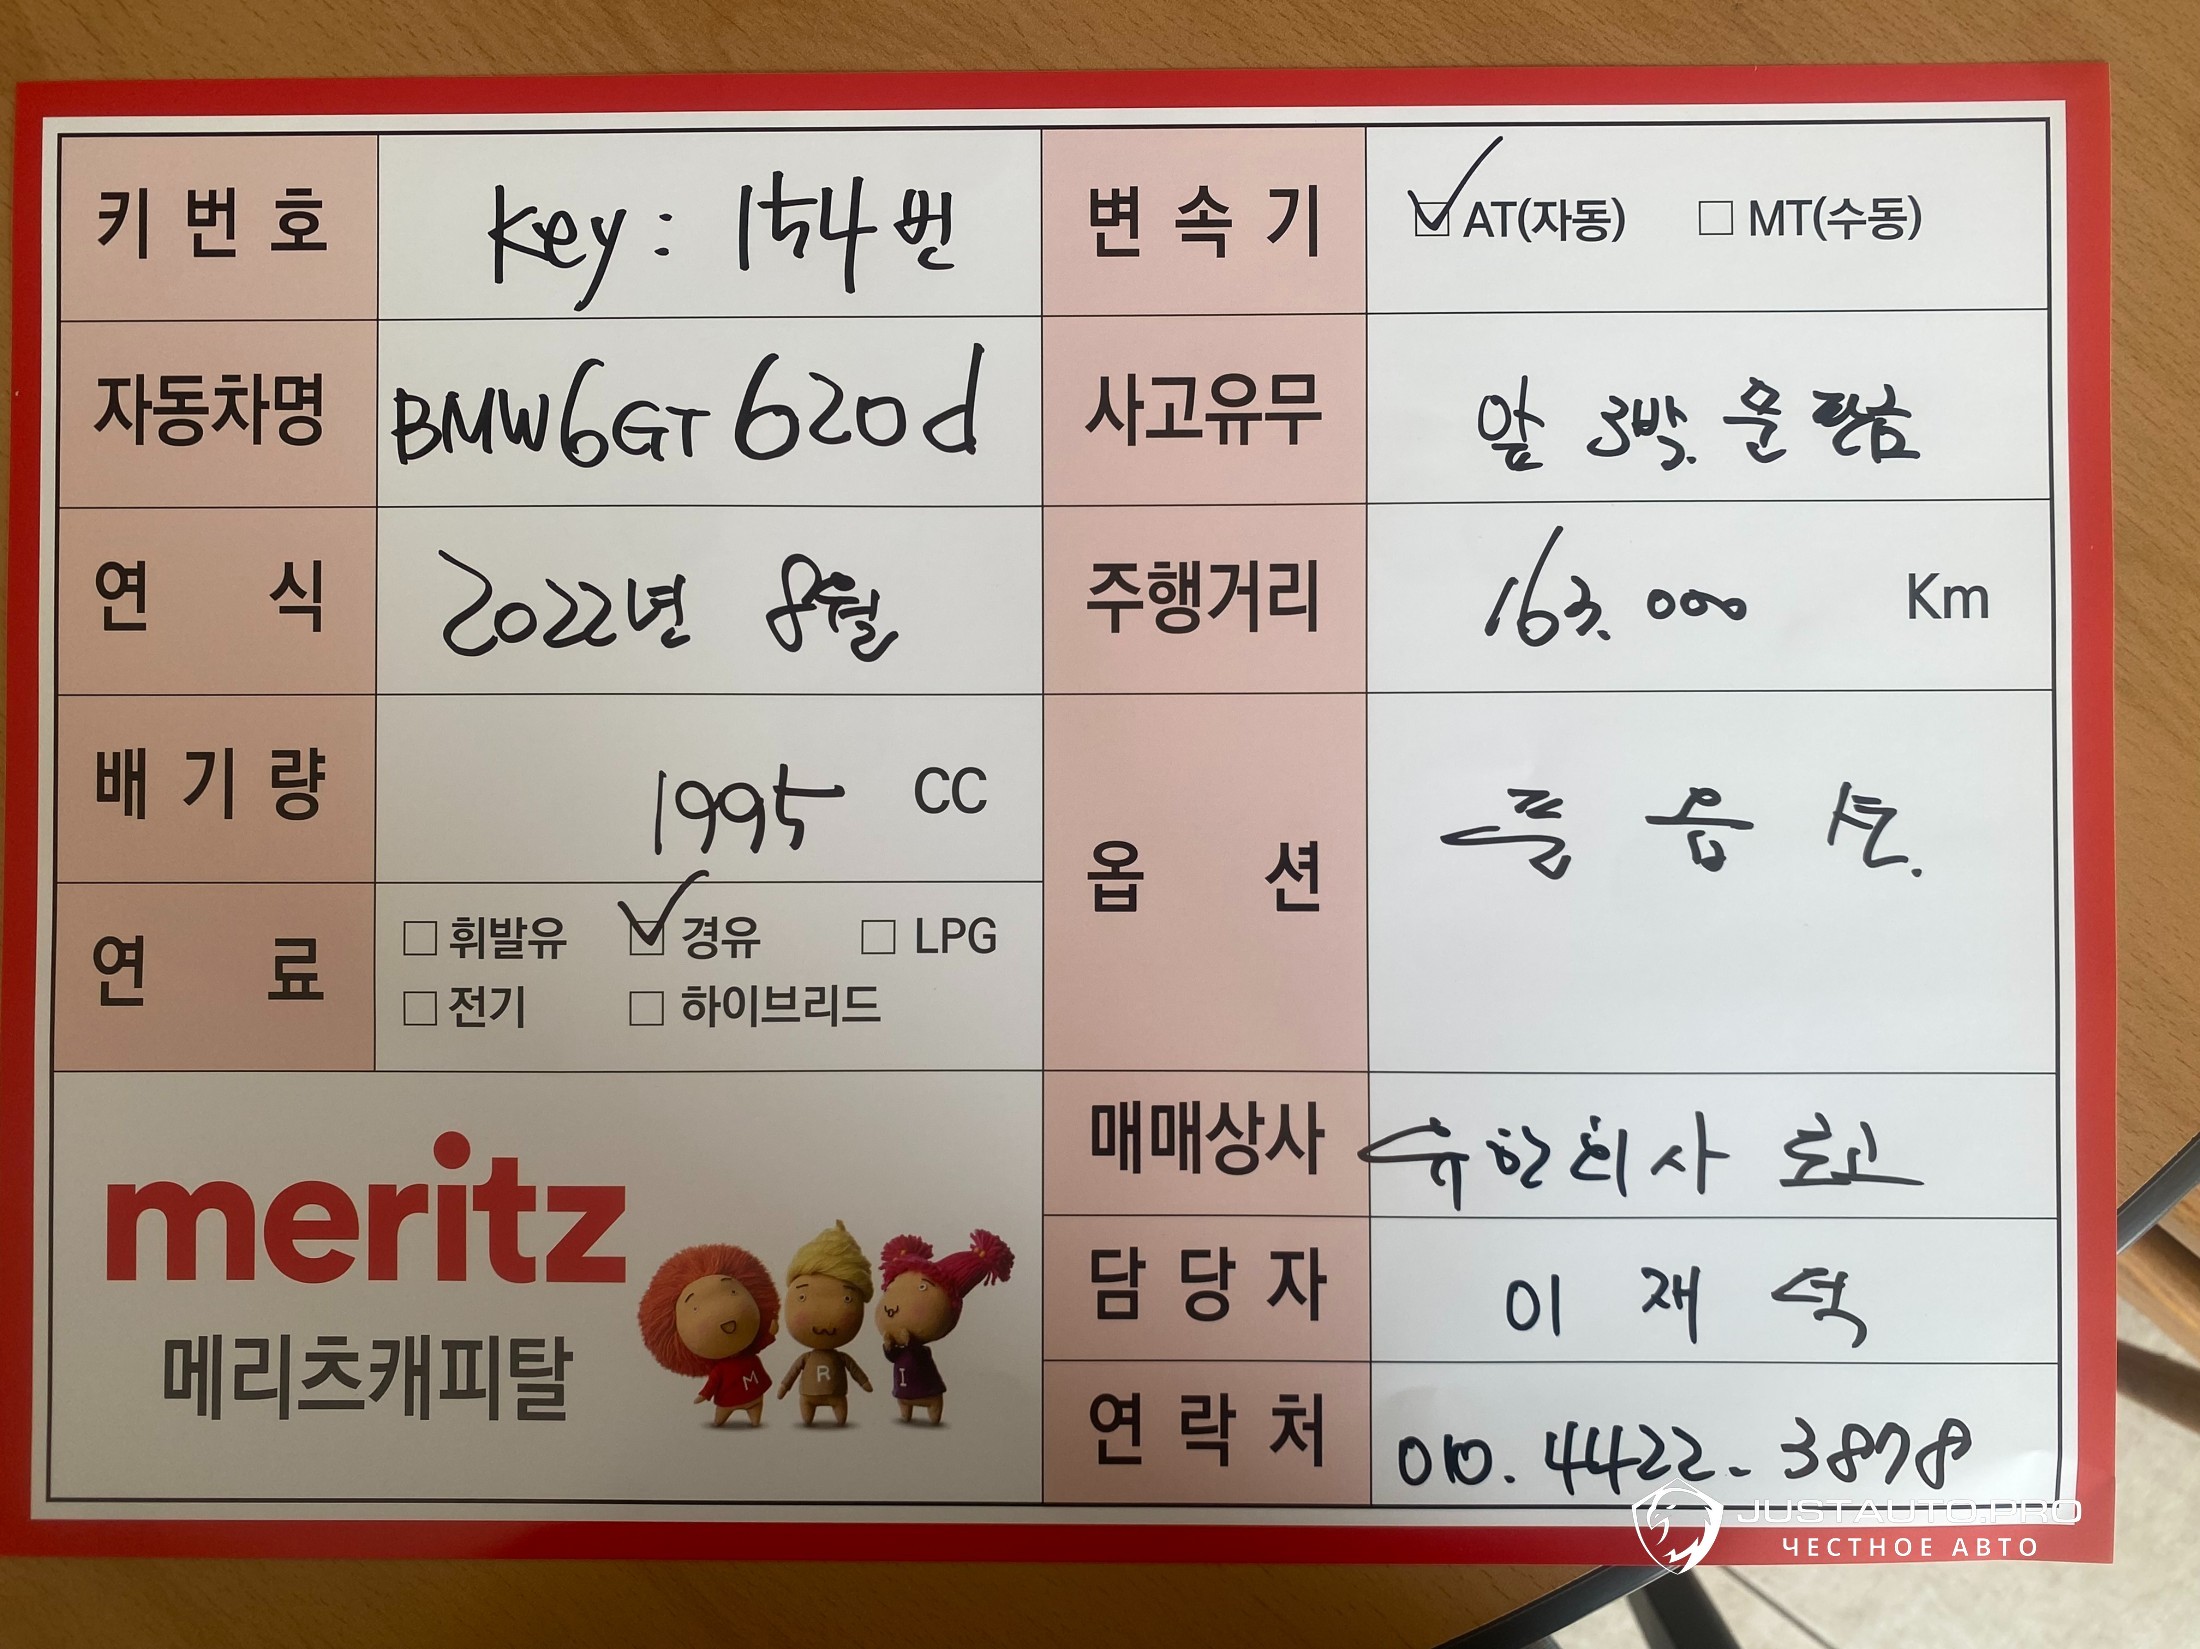 키 번 호 Key : 154번
변 속 기 ☑ AT(자동) □ MT(수동)
자동차명 BMW 6GT 620d
사고유무 앞 3박. 문 판금
연 식 2022년 8월
주행거리 163.000 Km
배 기 량 1995 CC
옵 션 풀 옵 션.
연 료 □ 휘발유 ☑ 경유 □ LPG
□ 전기 □ 하이브리드
매매상사 유한회사
담 당 자 이 재 석
연 락 처 010. 4422 - 3878
meritz
메리츠캐피탈
M R I
JUSTAUTO.PRO
ЧЕСТНОЕ АВТО